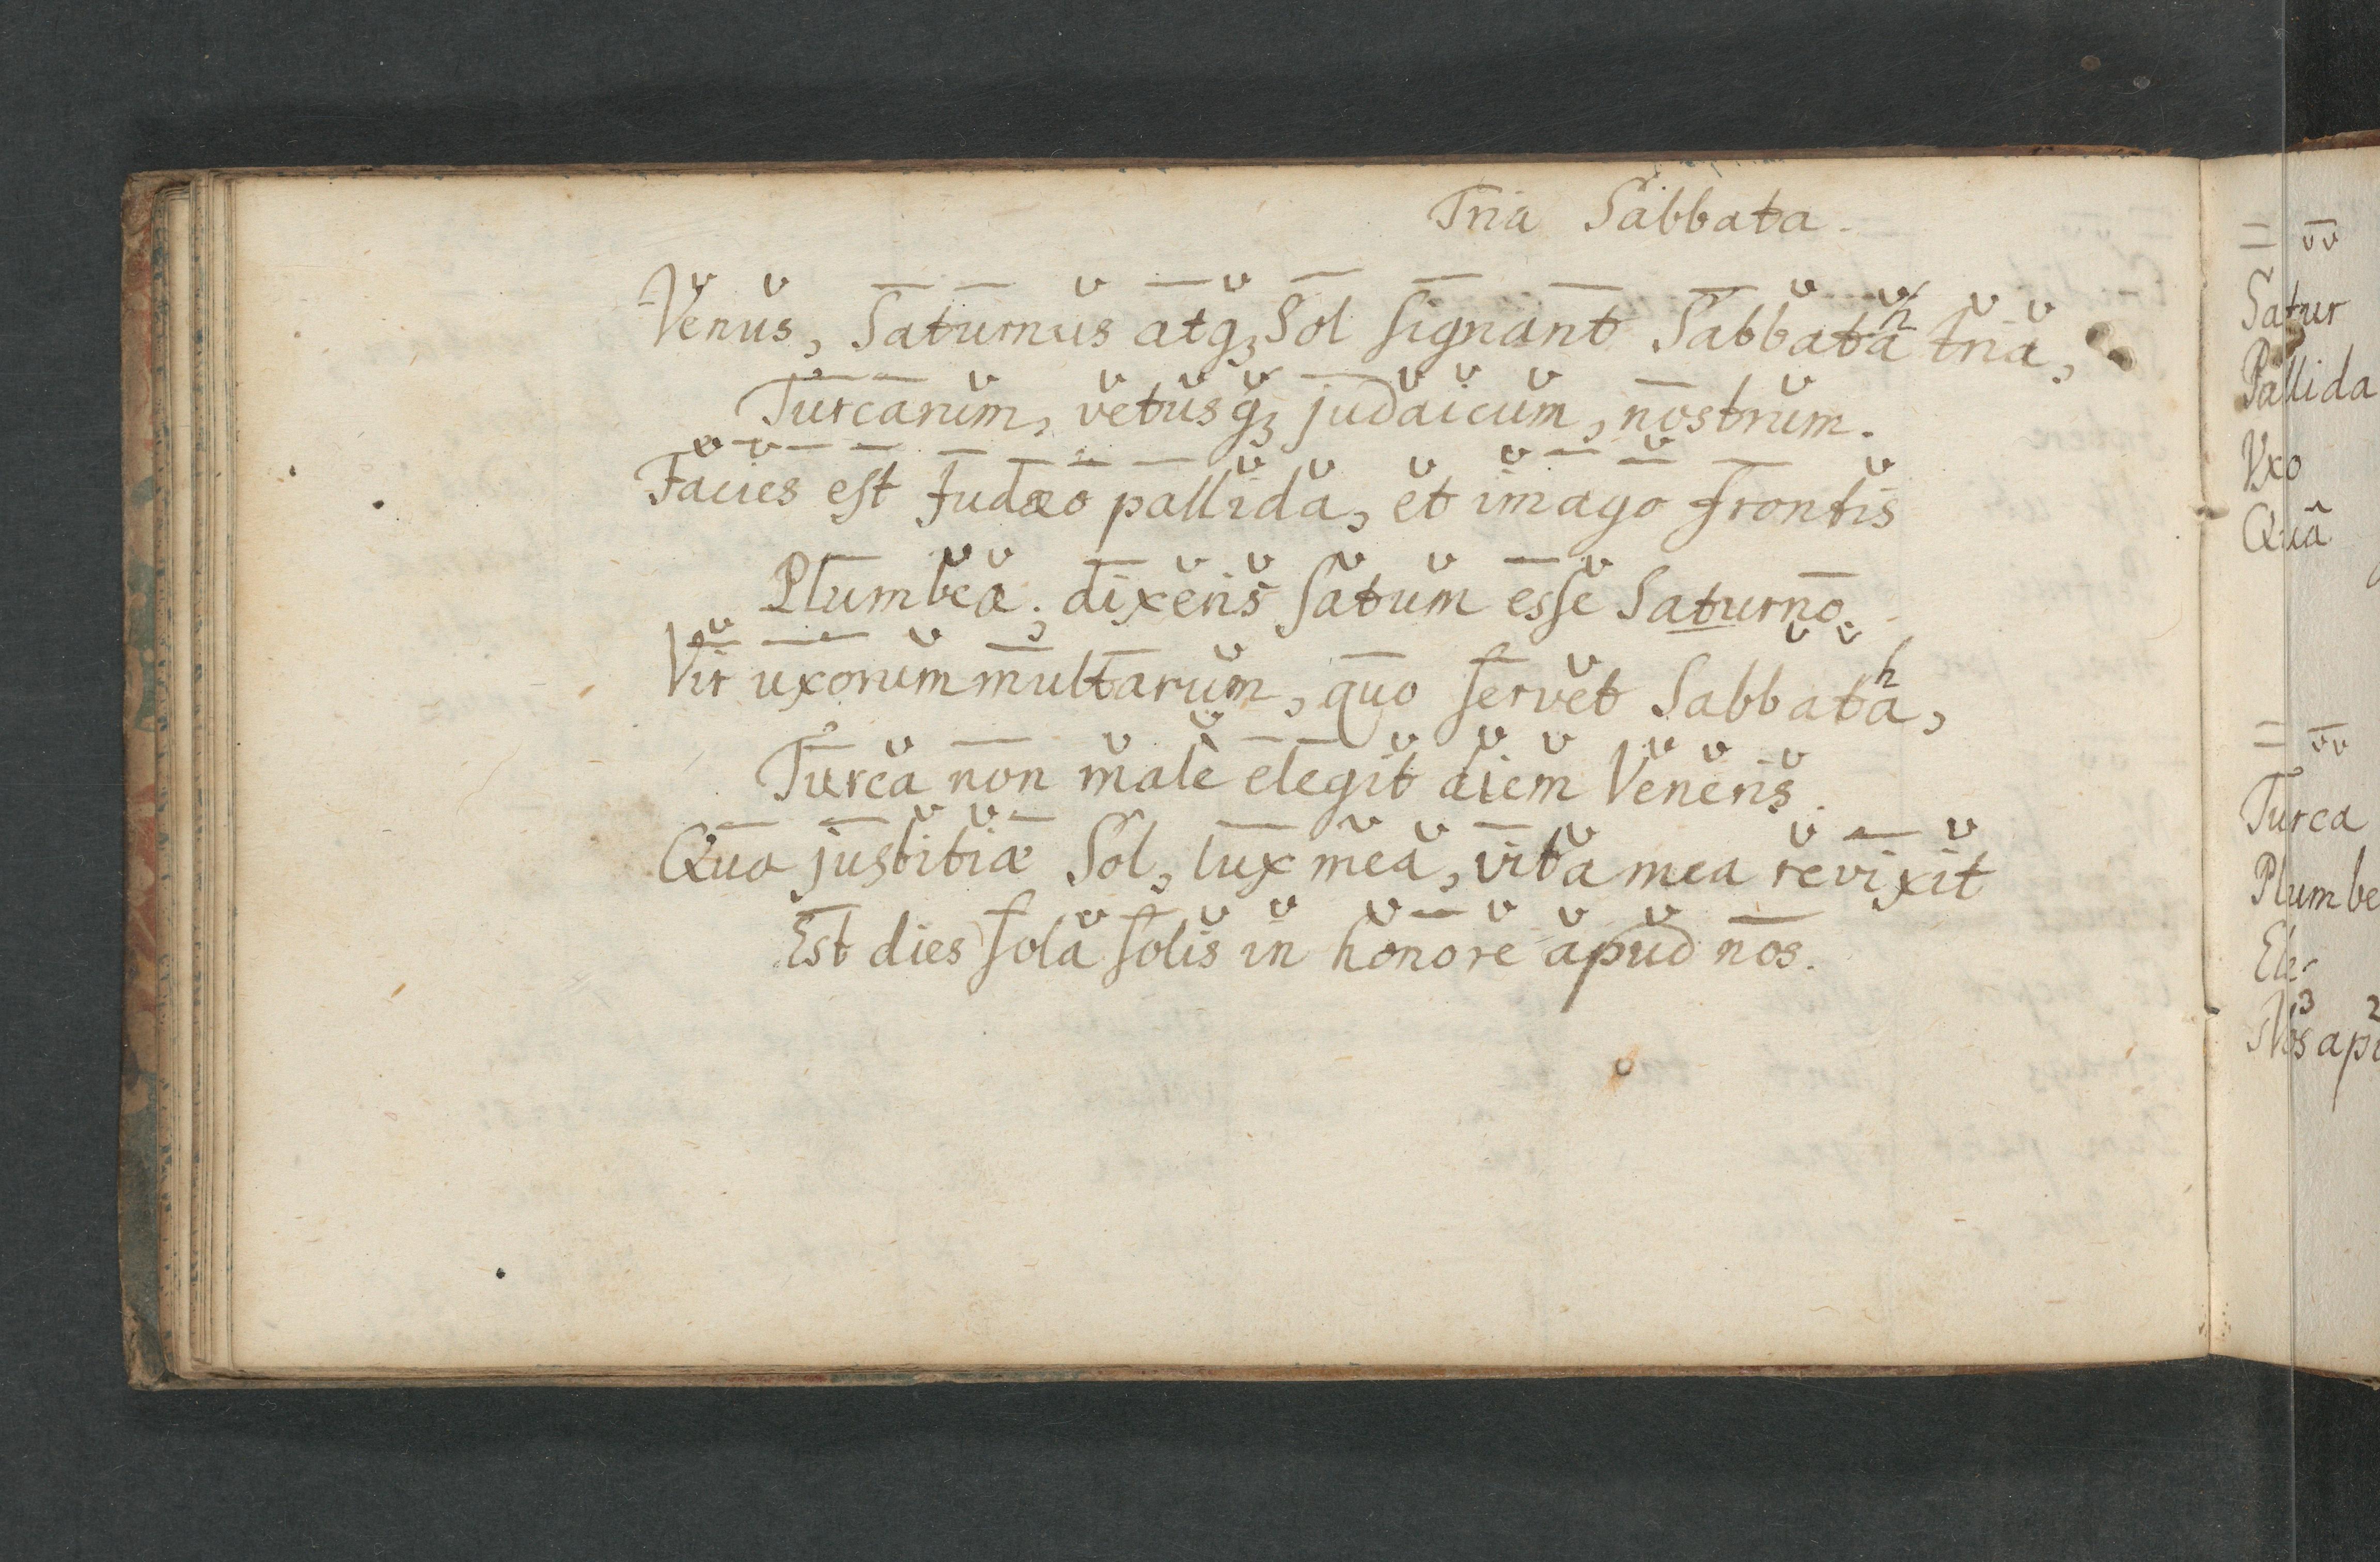 Tria Sabbata.
Venus, Saturnus atqꝫ Sol signant Sabbatha tria,
Turcarum, vetusqꝫ judaicum, nostrum.
Facies est Judæo pallida, et imago frontis
Plumbea; dixeris satum esse Saturno.
Vir uxorum multarum, quo servet Sabbatha,
Turca non malè elegit diem Veneris.
Quo justitiæ Sol, lux mea, vita mea revixit
Est dies sola solis in honore apud nos.
Satur
Pallida
Uxo
Quâ
Turca
Plumbe
Ele
Nos apu